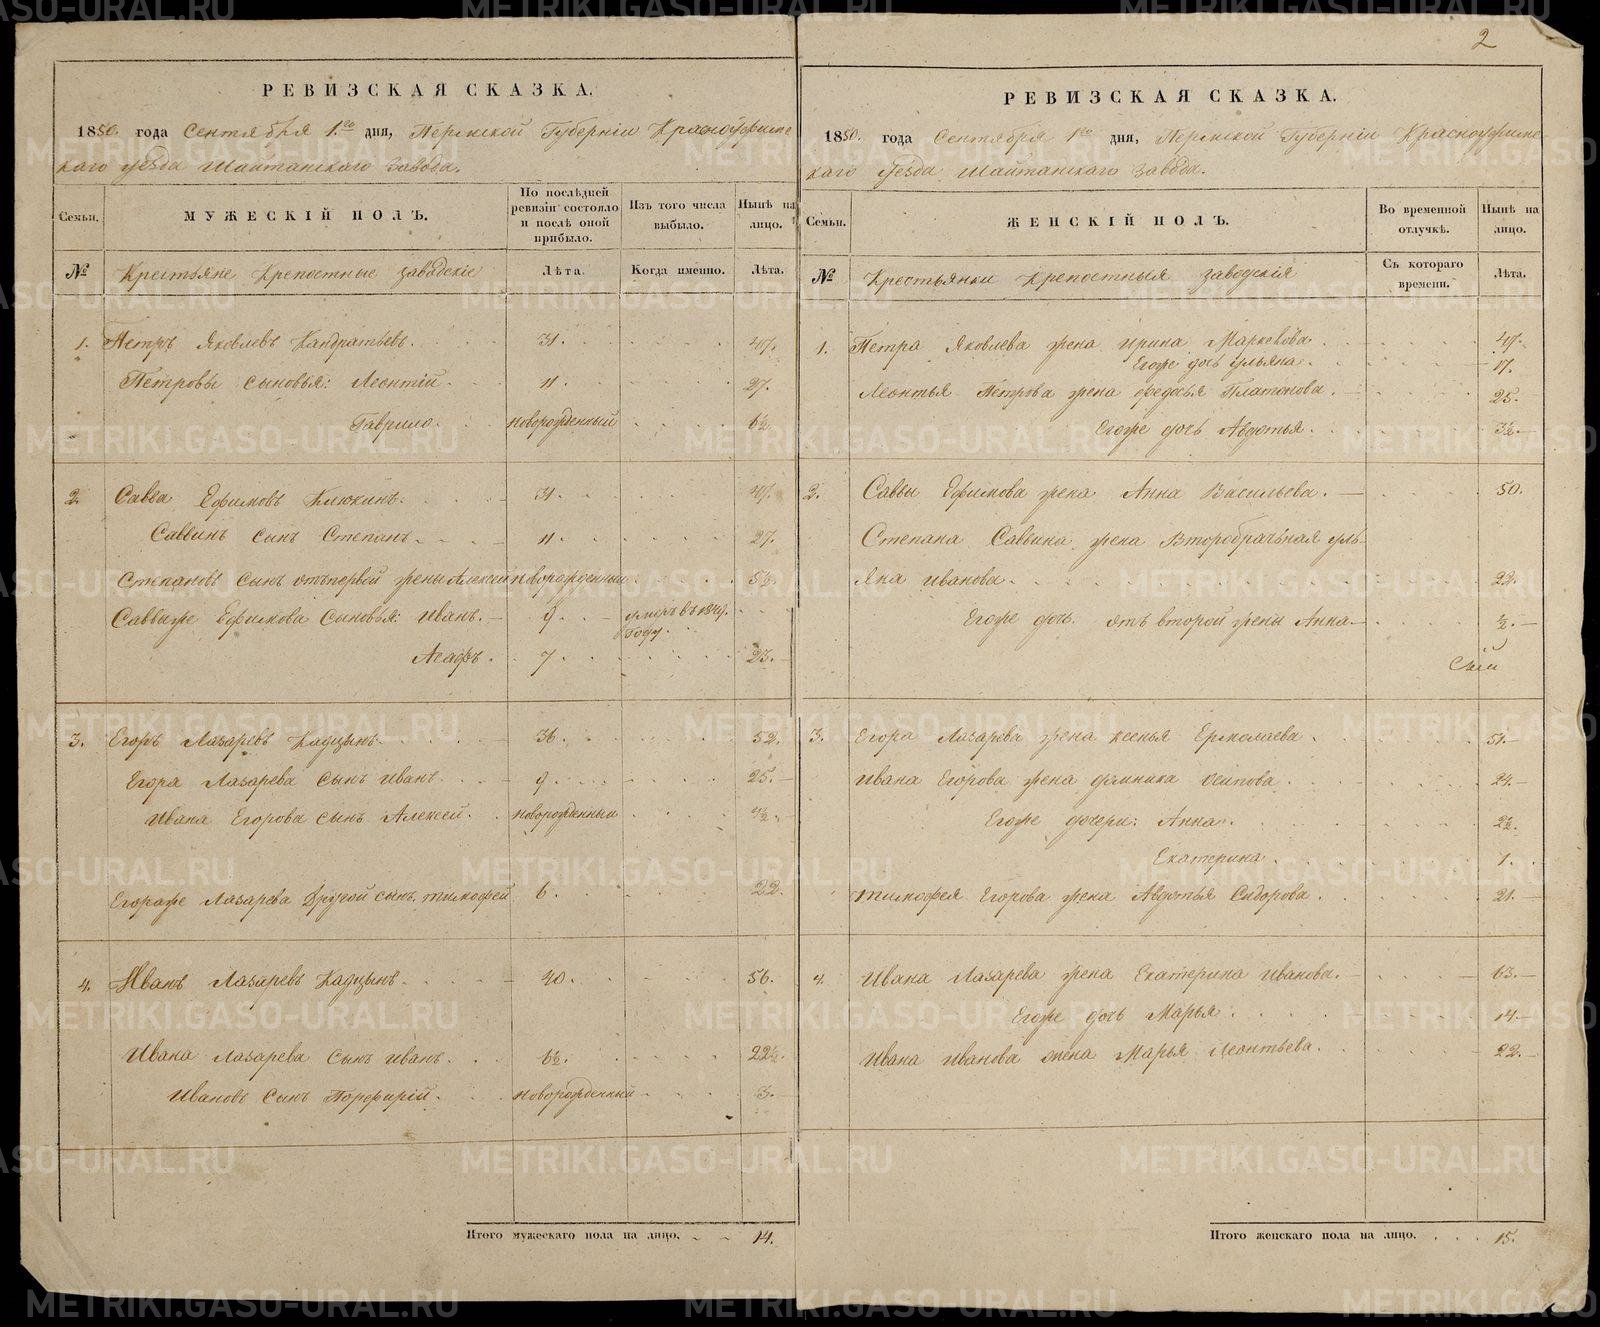 2
РЕВИЗСКАЯ СКАЗКА.
1850. года Сентября 1го дня, Пермской Губерніи Красноуфимс
каго уезда Шайтанскаго завода.
Семьи.
МУЖЕСКІЙ ПОЛЪ.
По послѣдней ревизіи состояло и послѣ оной прибыло.
Изъ того числа выбыло.
Нынѣ на лицо.
№ Крестьяне Крепостные заводскіе Лѣта. Когда именно. Лѣта.
1. Петръ Яковлевъ Кандратьевъ. 31. 47.
Петровы сыновья: Леонтій. 11. 27.
Гаврило. новорожденный 6½
2. Савва Ефимовъ Клюкинъ. 31. 47.
Саввинъ сынъ Степанъ. 11. 27.
Степановъ сынъ отъ первой жены Алексей новорожденный 5½.
Саввыже Ефимова сыновья: Иванъ. 9. умеръ въ 1849. году.
Агафъ. 7. 23.
3. Егоръ Лазаревъ Кадцынъ. 36. 52.
Егора Лазарева сынъ Иванъ. 9. 25.
Ивана Егорова сынъ Алексей. новорожденный
Егораже Лазарева другой сынъ Тимофей 6. 22.
4. Иванъ Лазаревъ Кадцынъ. 40. 56.
Ивана Лазарева сынъ Иванъ. 6½. 22½.
Ивановъ сынъ Порфирій. новорожденный 3.
Итого мужескаго пола на лицо. 14.
РЕВИЗСКАЯ СКАЗКА.
1850. года Сентября 1го дня, Пермской Губерніи Красноуфимс
каго Уезда Шайтанскаго завода.
Семьи.
ЖЕНСКІЙ ПОЛЪ.
Во временной отлучкѣ.
Нынѣ на лицо.
№ Крестьянки Крепостныя заводскія Съ котораго времени. Лѣта.
1. Петра Яковлева жена Ирина Маркелова. 47.
Егоже дочь Ульяна. 17.
Леонтья Петрова жена Федосья Платонова. 25.
Егоже дочь Авдотья. 3½.
2. Саввы Ефимова жена Анна Васильева. 50.
Степана Саввина жена Второбрачьная Уль-
яна Иванова. 22.
Егоже дочь отъ второй жены Анна. ½.
3. Егора Лазарева жена Ксенья Ермолаева. 51.
Ивана Егорова жена Домника Осипова. 24.
Егоже дочери: Анна. 2½.
Екатерина. 1.
Тимофея Егорова жена Авдотья Сидорова. 21.
4. Ивана Лазарева жена Екатерина Иванова. 63.
Егоже дочь Марья. 14.
Ивана Иванова жена Марья Леонтьева. 22.
Итого женскаго пола на лицо. 15.
METRIKI.GASO-URAL.RU